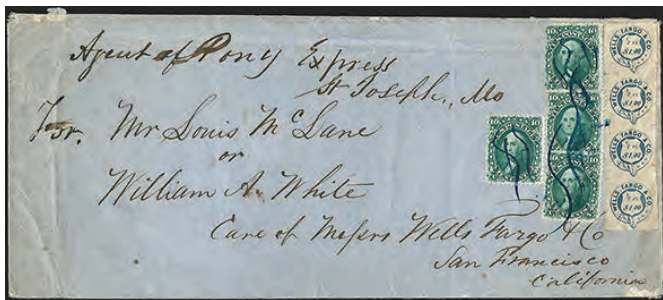 Agent of Pony Express
St Joseph, Mo
For. Mr Louis McLane
or
William A. White
Care of Messrs Wells Fargo & Co
San Francisco
California
10 10
10 10
10 10
10 10
WELLS FARGO & CO.
$1.00
WELLS FARGO & CO.
$1.00
WELLS FARGO & CO.
$1.00
WELLS FARGO & CO.
$1.00